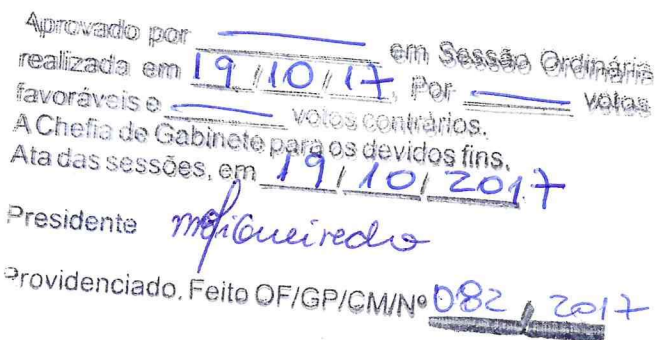 Aprovado por ______ em Sessão Ordinária
realizada em 19/10/17. Por ______ votos
favoráveis e ______ votos contrários.
A Chefia de Gabinete para os devidos fins.
Ata das sessões, em 19/10/2017
Presidente mfigueiredo
Providenciado. Feito OF/GP/CM/Nº 082, 2017